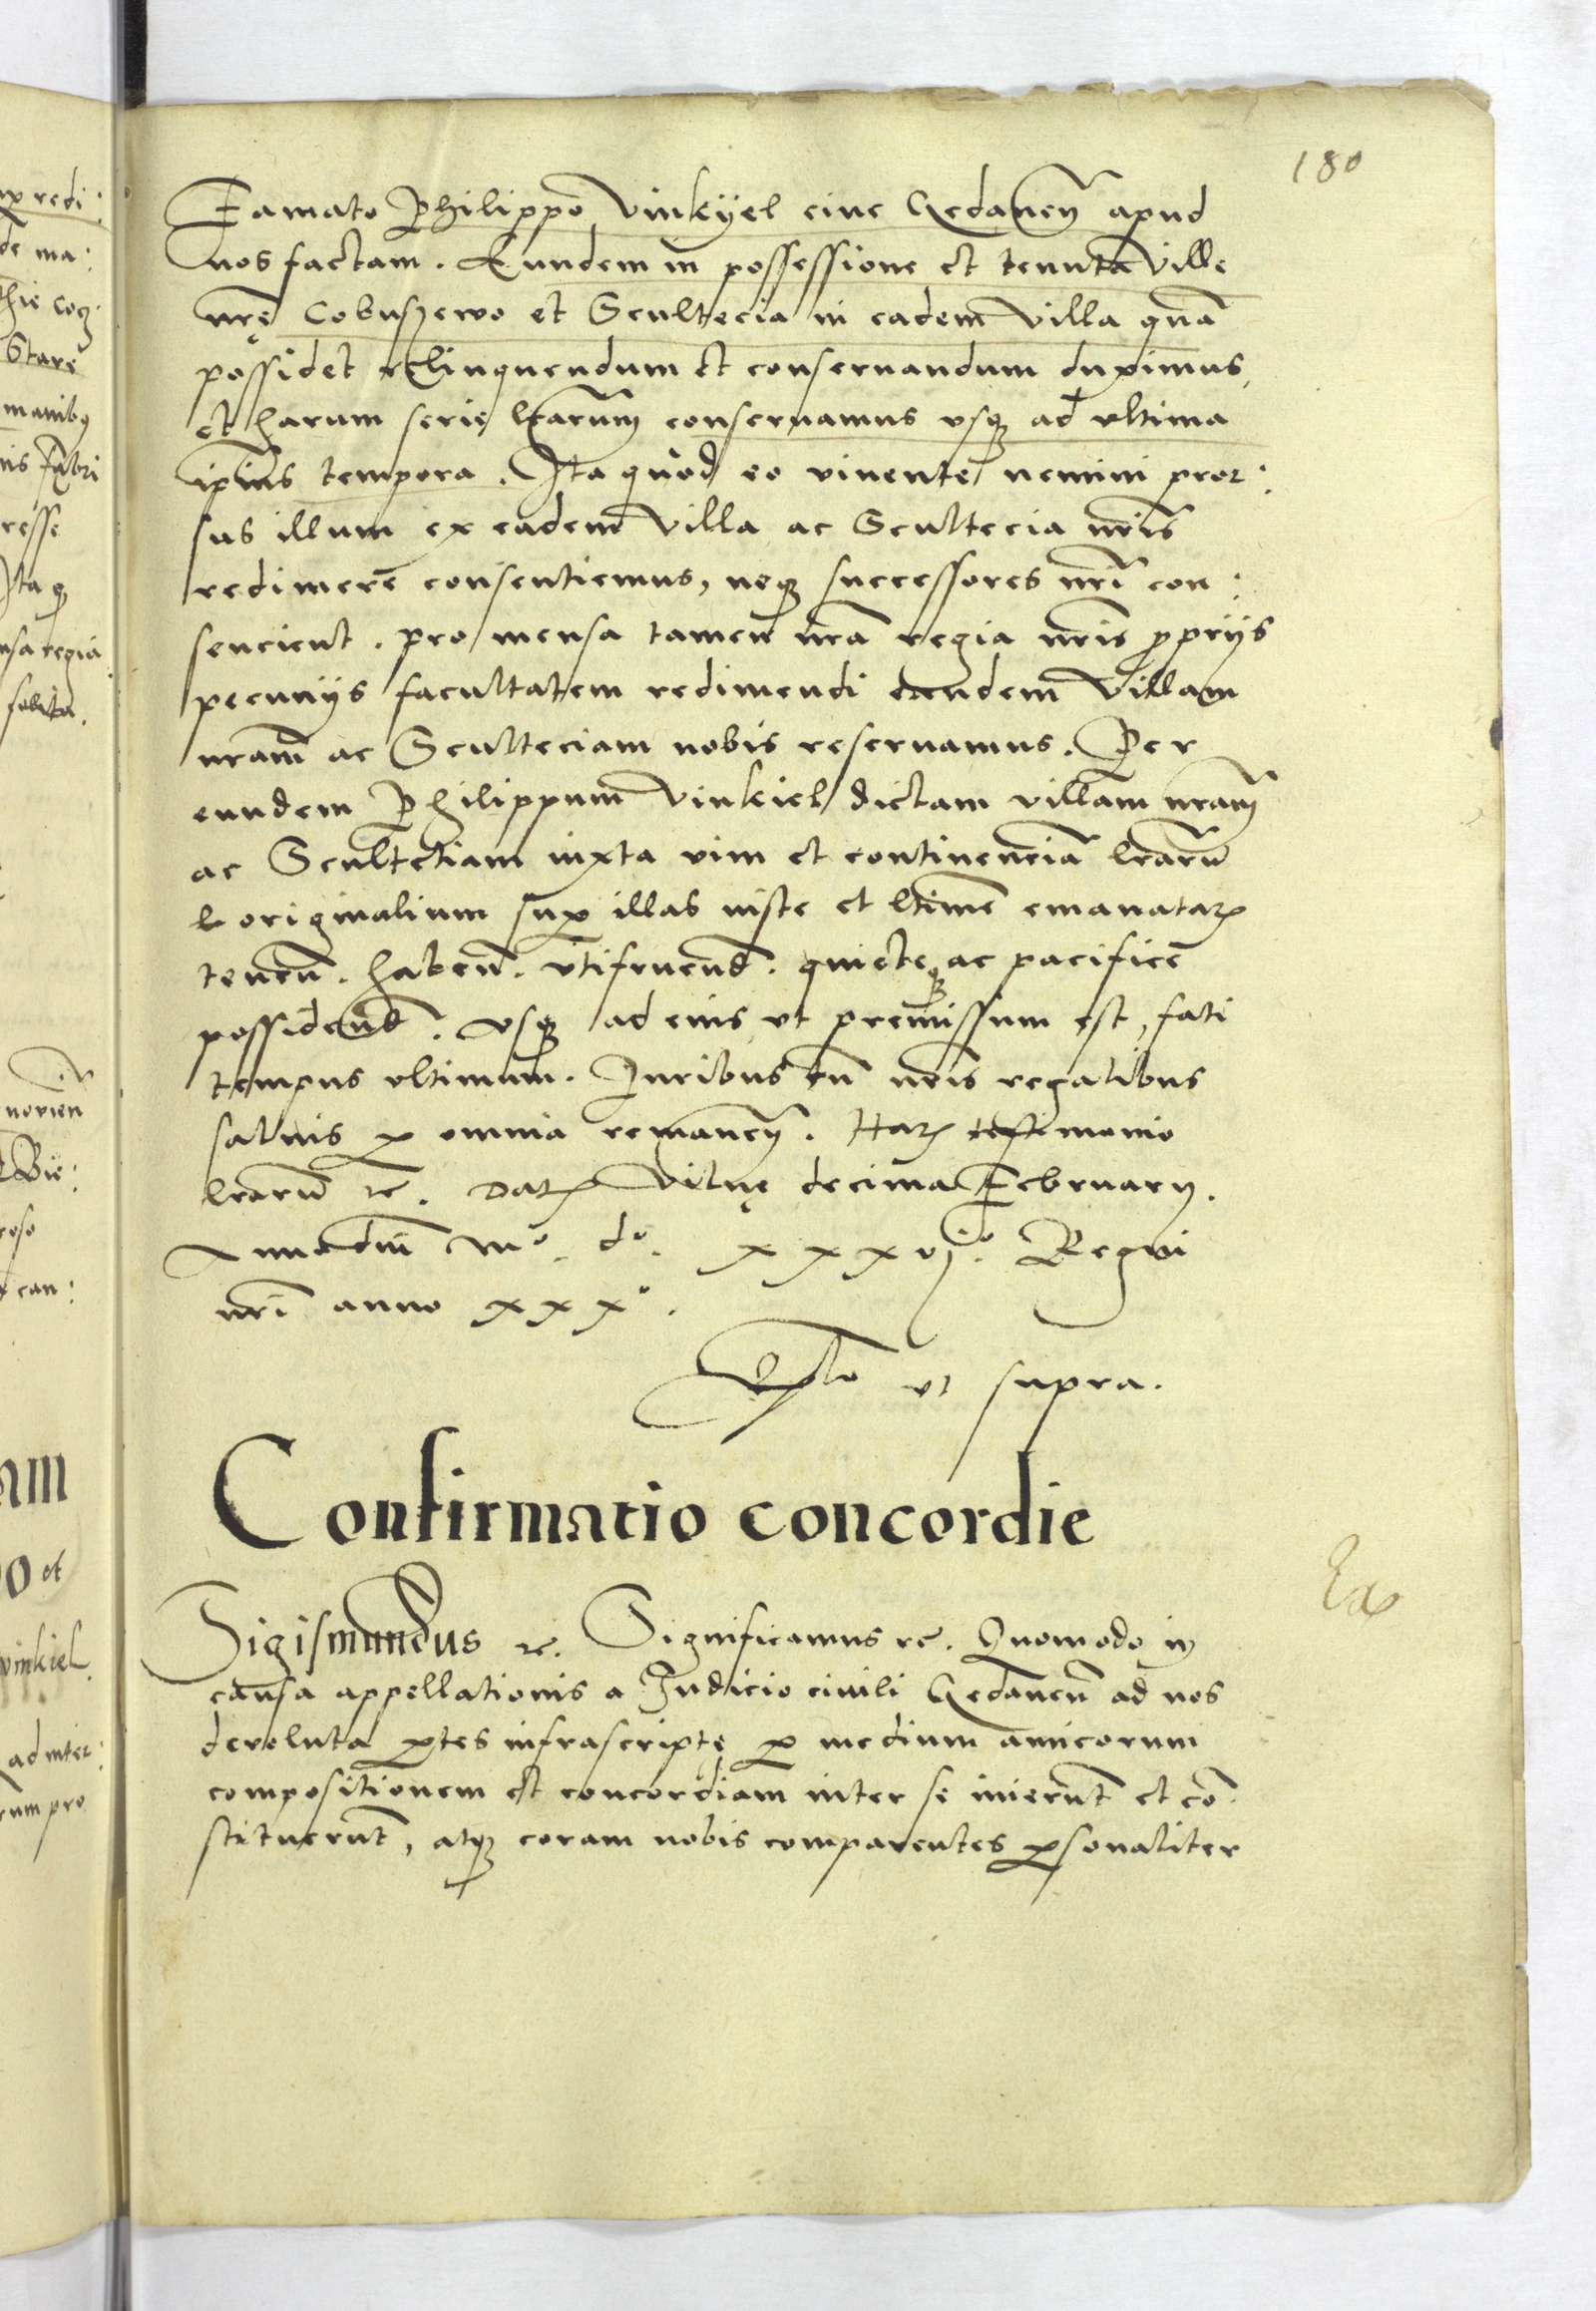 180
Famato Philippo Vinkyel ciue Gedanen̄ apud
nos factam. Eundem in possessione et tenuta Ville
nrę Cobuszewo et Scultecia in eadem Villa quā
possidet relinquendum et conseruandum duximus,
et harum serie lrarum conseruamus vsq ad vltima
ipius tempora. Ita quod eo viuente nemini pror:
sus illum ex eadem Villa ac Scultecia nr̄is
redimere consentiemus, neq successores nr̄i con:
sencient. pro mensa tamen nr̄a regia nr̄is ꝓprijs
pecunijs facultatem redimendi eandem Villam
nram̄ ac Sculteciam nobis reseruamus. Per
eundem Philippum Vinkiel dictam villam nram̄
ac Scultetiam iuxta vim et continenciā lrarū
originalium suꝑ illas iuste et ltime emanataꝝ
tenen̄. haben̄. vtifruend̄. quieteq ac pacifice
possidend̄. vsq ad eius vt premissum est, fati
tempus vltimum. Iuribus tn̄ nr̄is regalibus
saluis ꝑ omnia remanen̄. Haꝝ testimonio
lrarū rc. Datꝝ Vilnę decima Februarij.
Anno dn̄i mº. dº. xxxvjº. Regni
nr̄i anno xxxº.
vt supra.
Confirmatio concordie
Sigismundus rc. Significamus rc. Quomodo in
causa appellationis a Iudicio ciuili Gedanen̄ ad nos
deuoluta ꝑtes infrascriptę ꝑ medium amicorum
compositionem et concordiam inter se inierunt et cō
stituerunt, atq coram nobis comparentes ꝑsonaliter